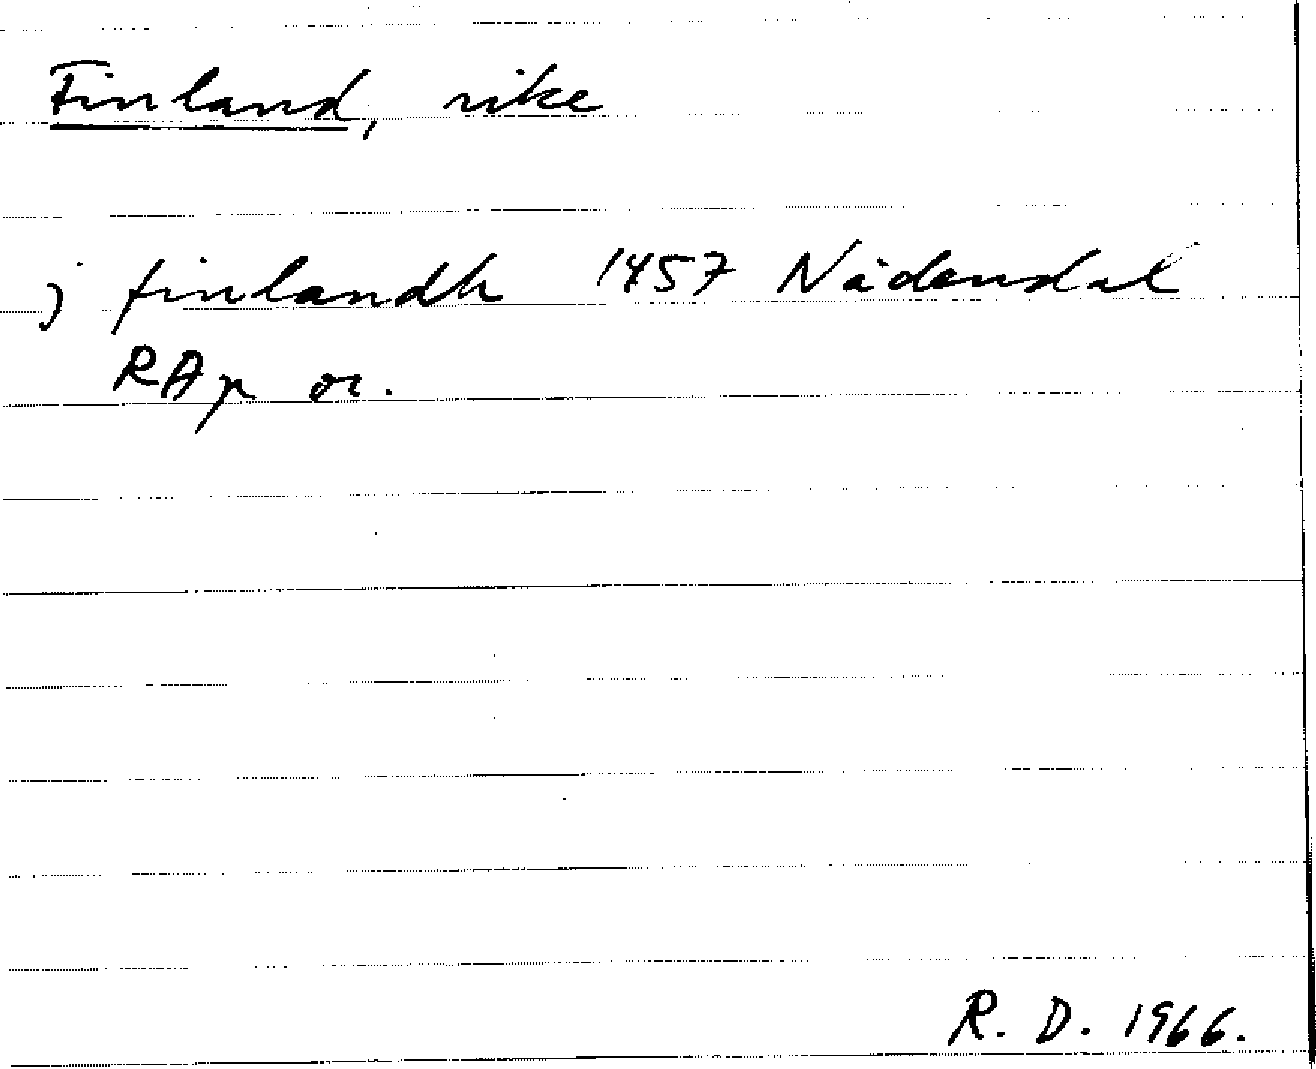 Finland, rike
j finlandh 1457 Nådendal
RAp or.
R. D. 1966.